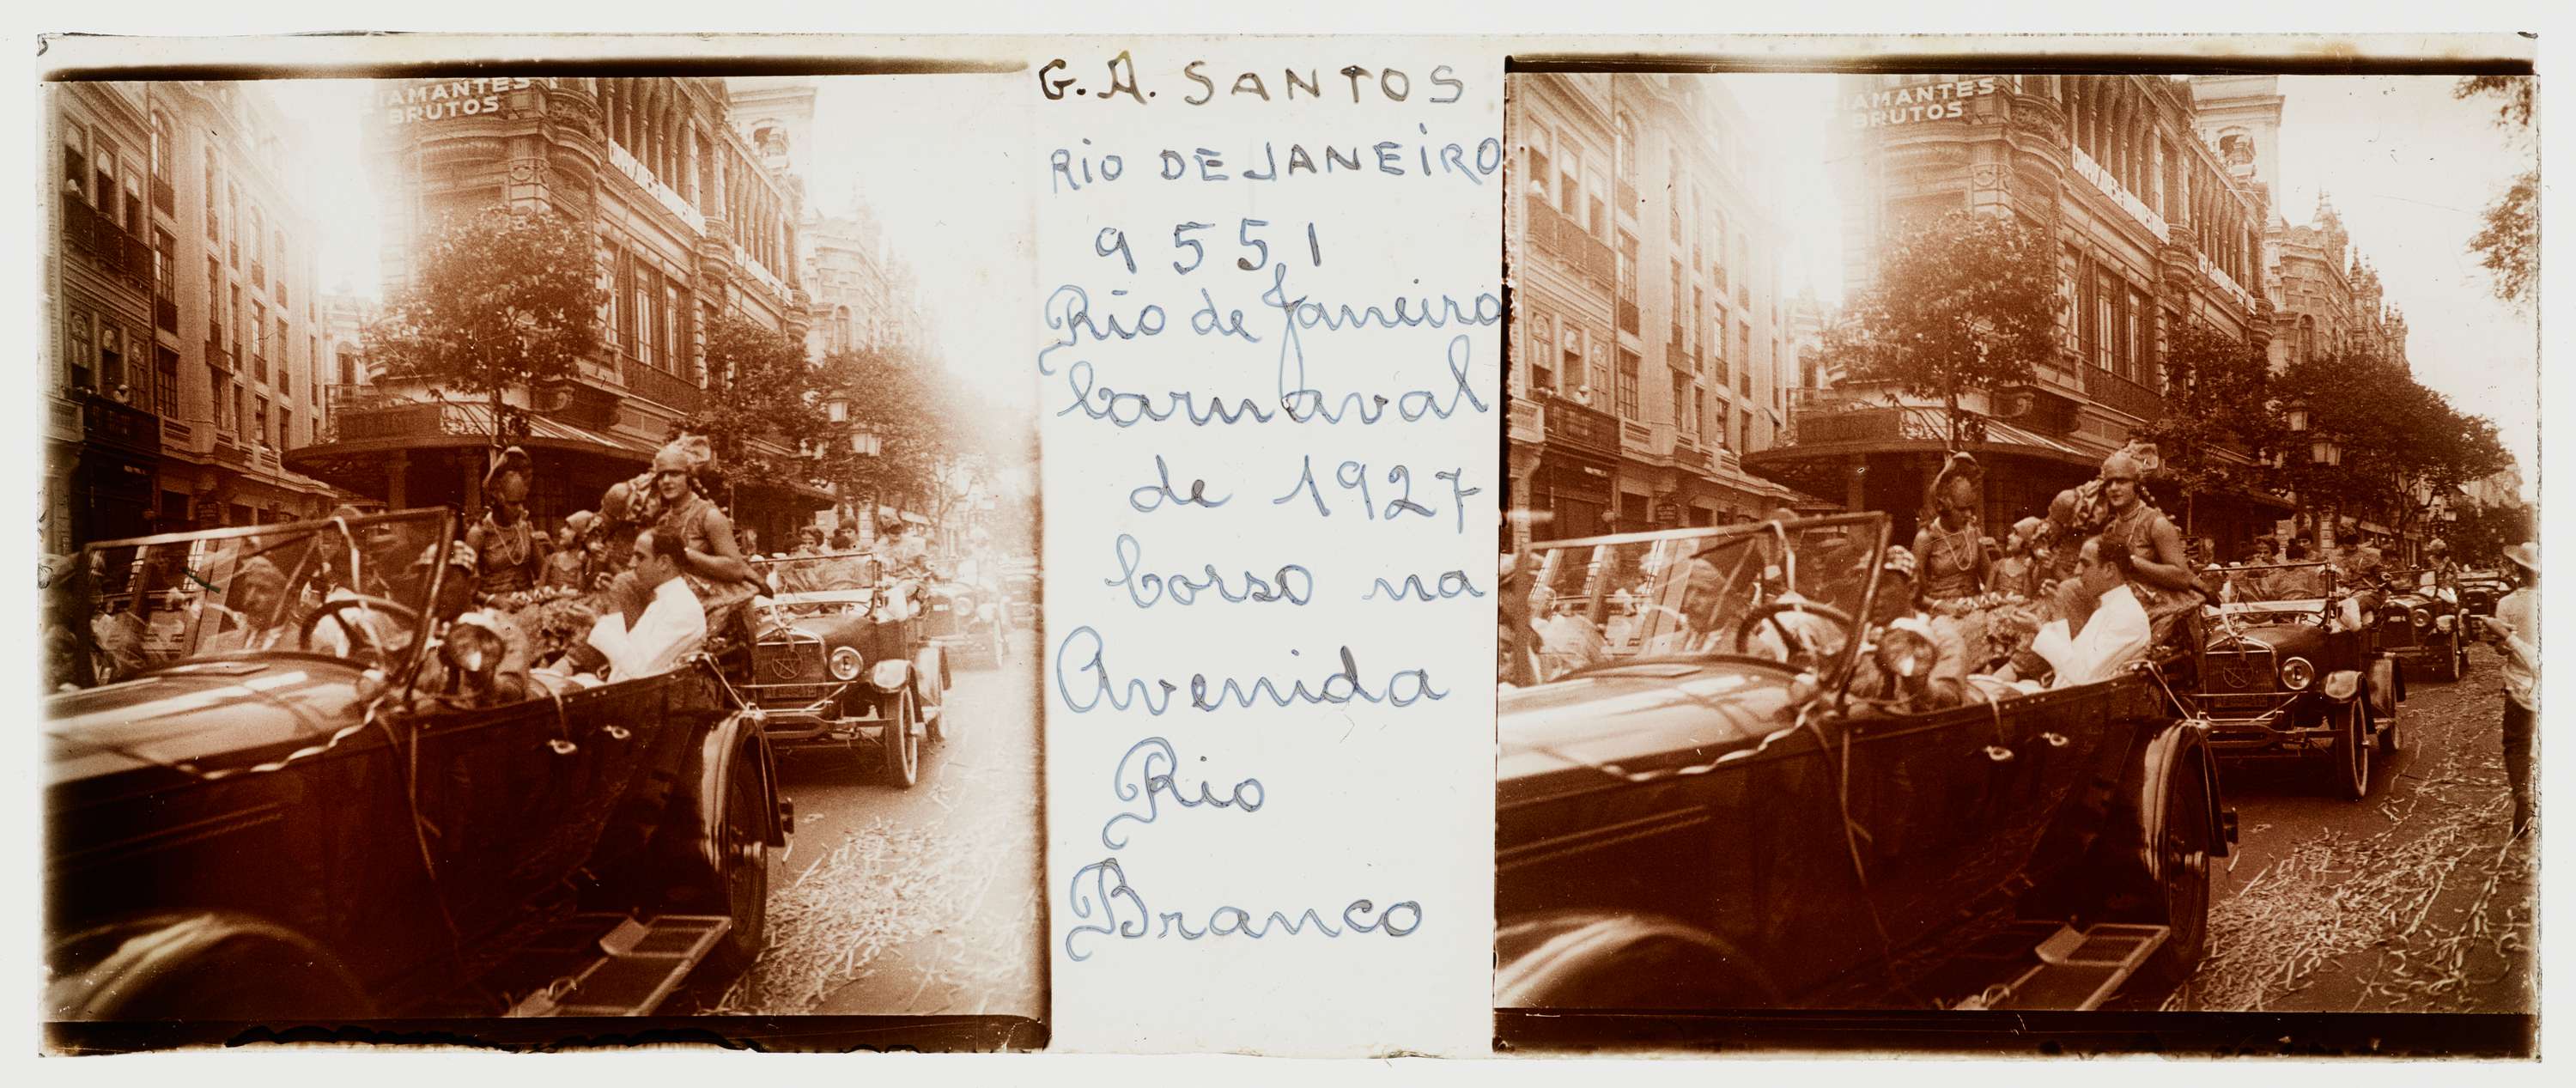 DIAMANTES
BRUTOS
G. A. SANTOS
RIO DE JANEIRO
9551
Rio de Janeiro
Carnaval
de 1927
Corso na
Avenida
Rio
Branco
IAMANTES
BRUTOS